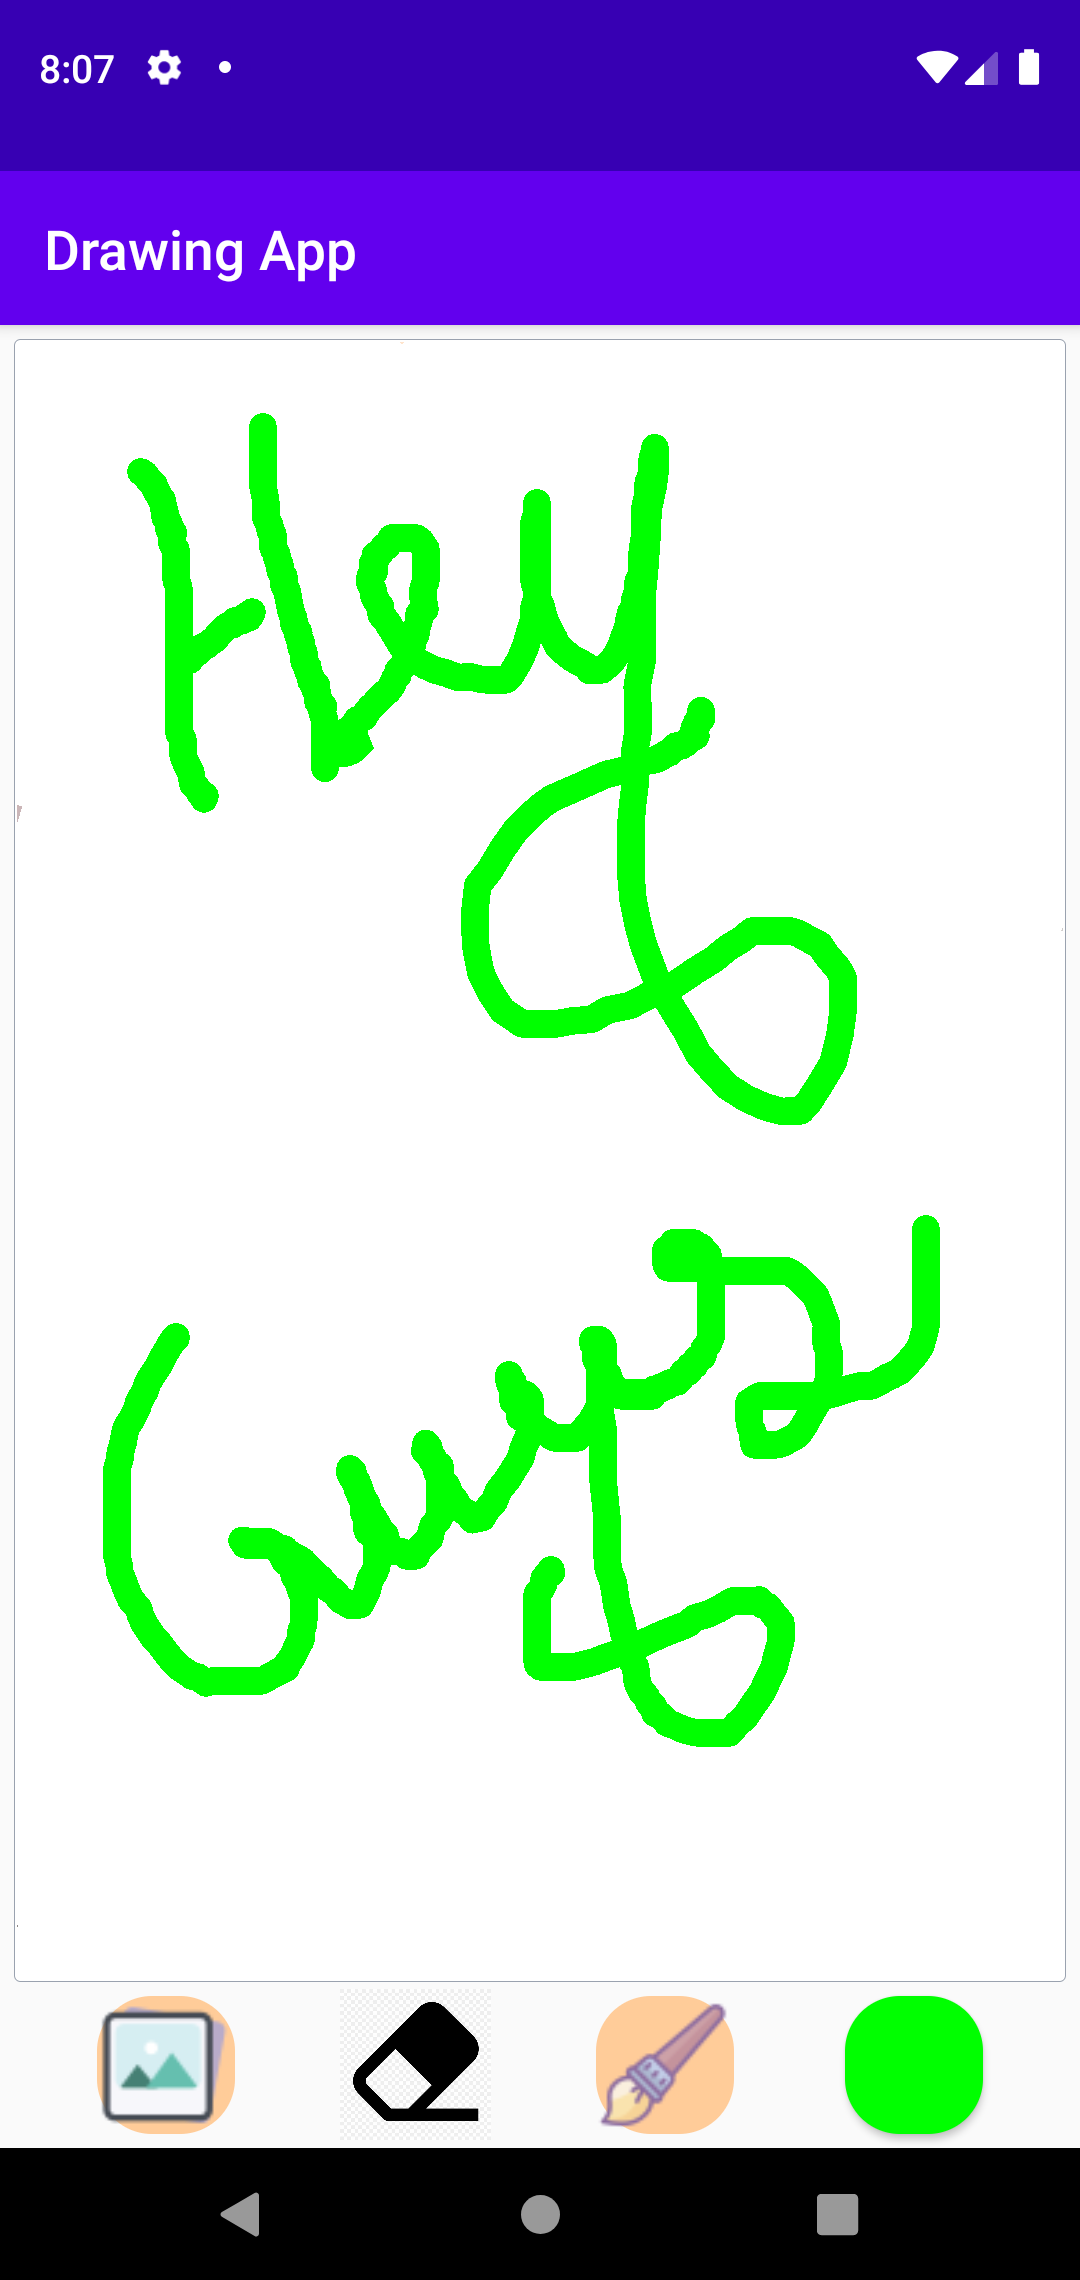 8:07
Drawing App
Hey
Guys